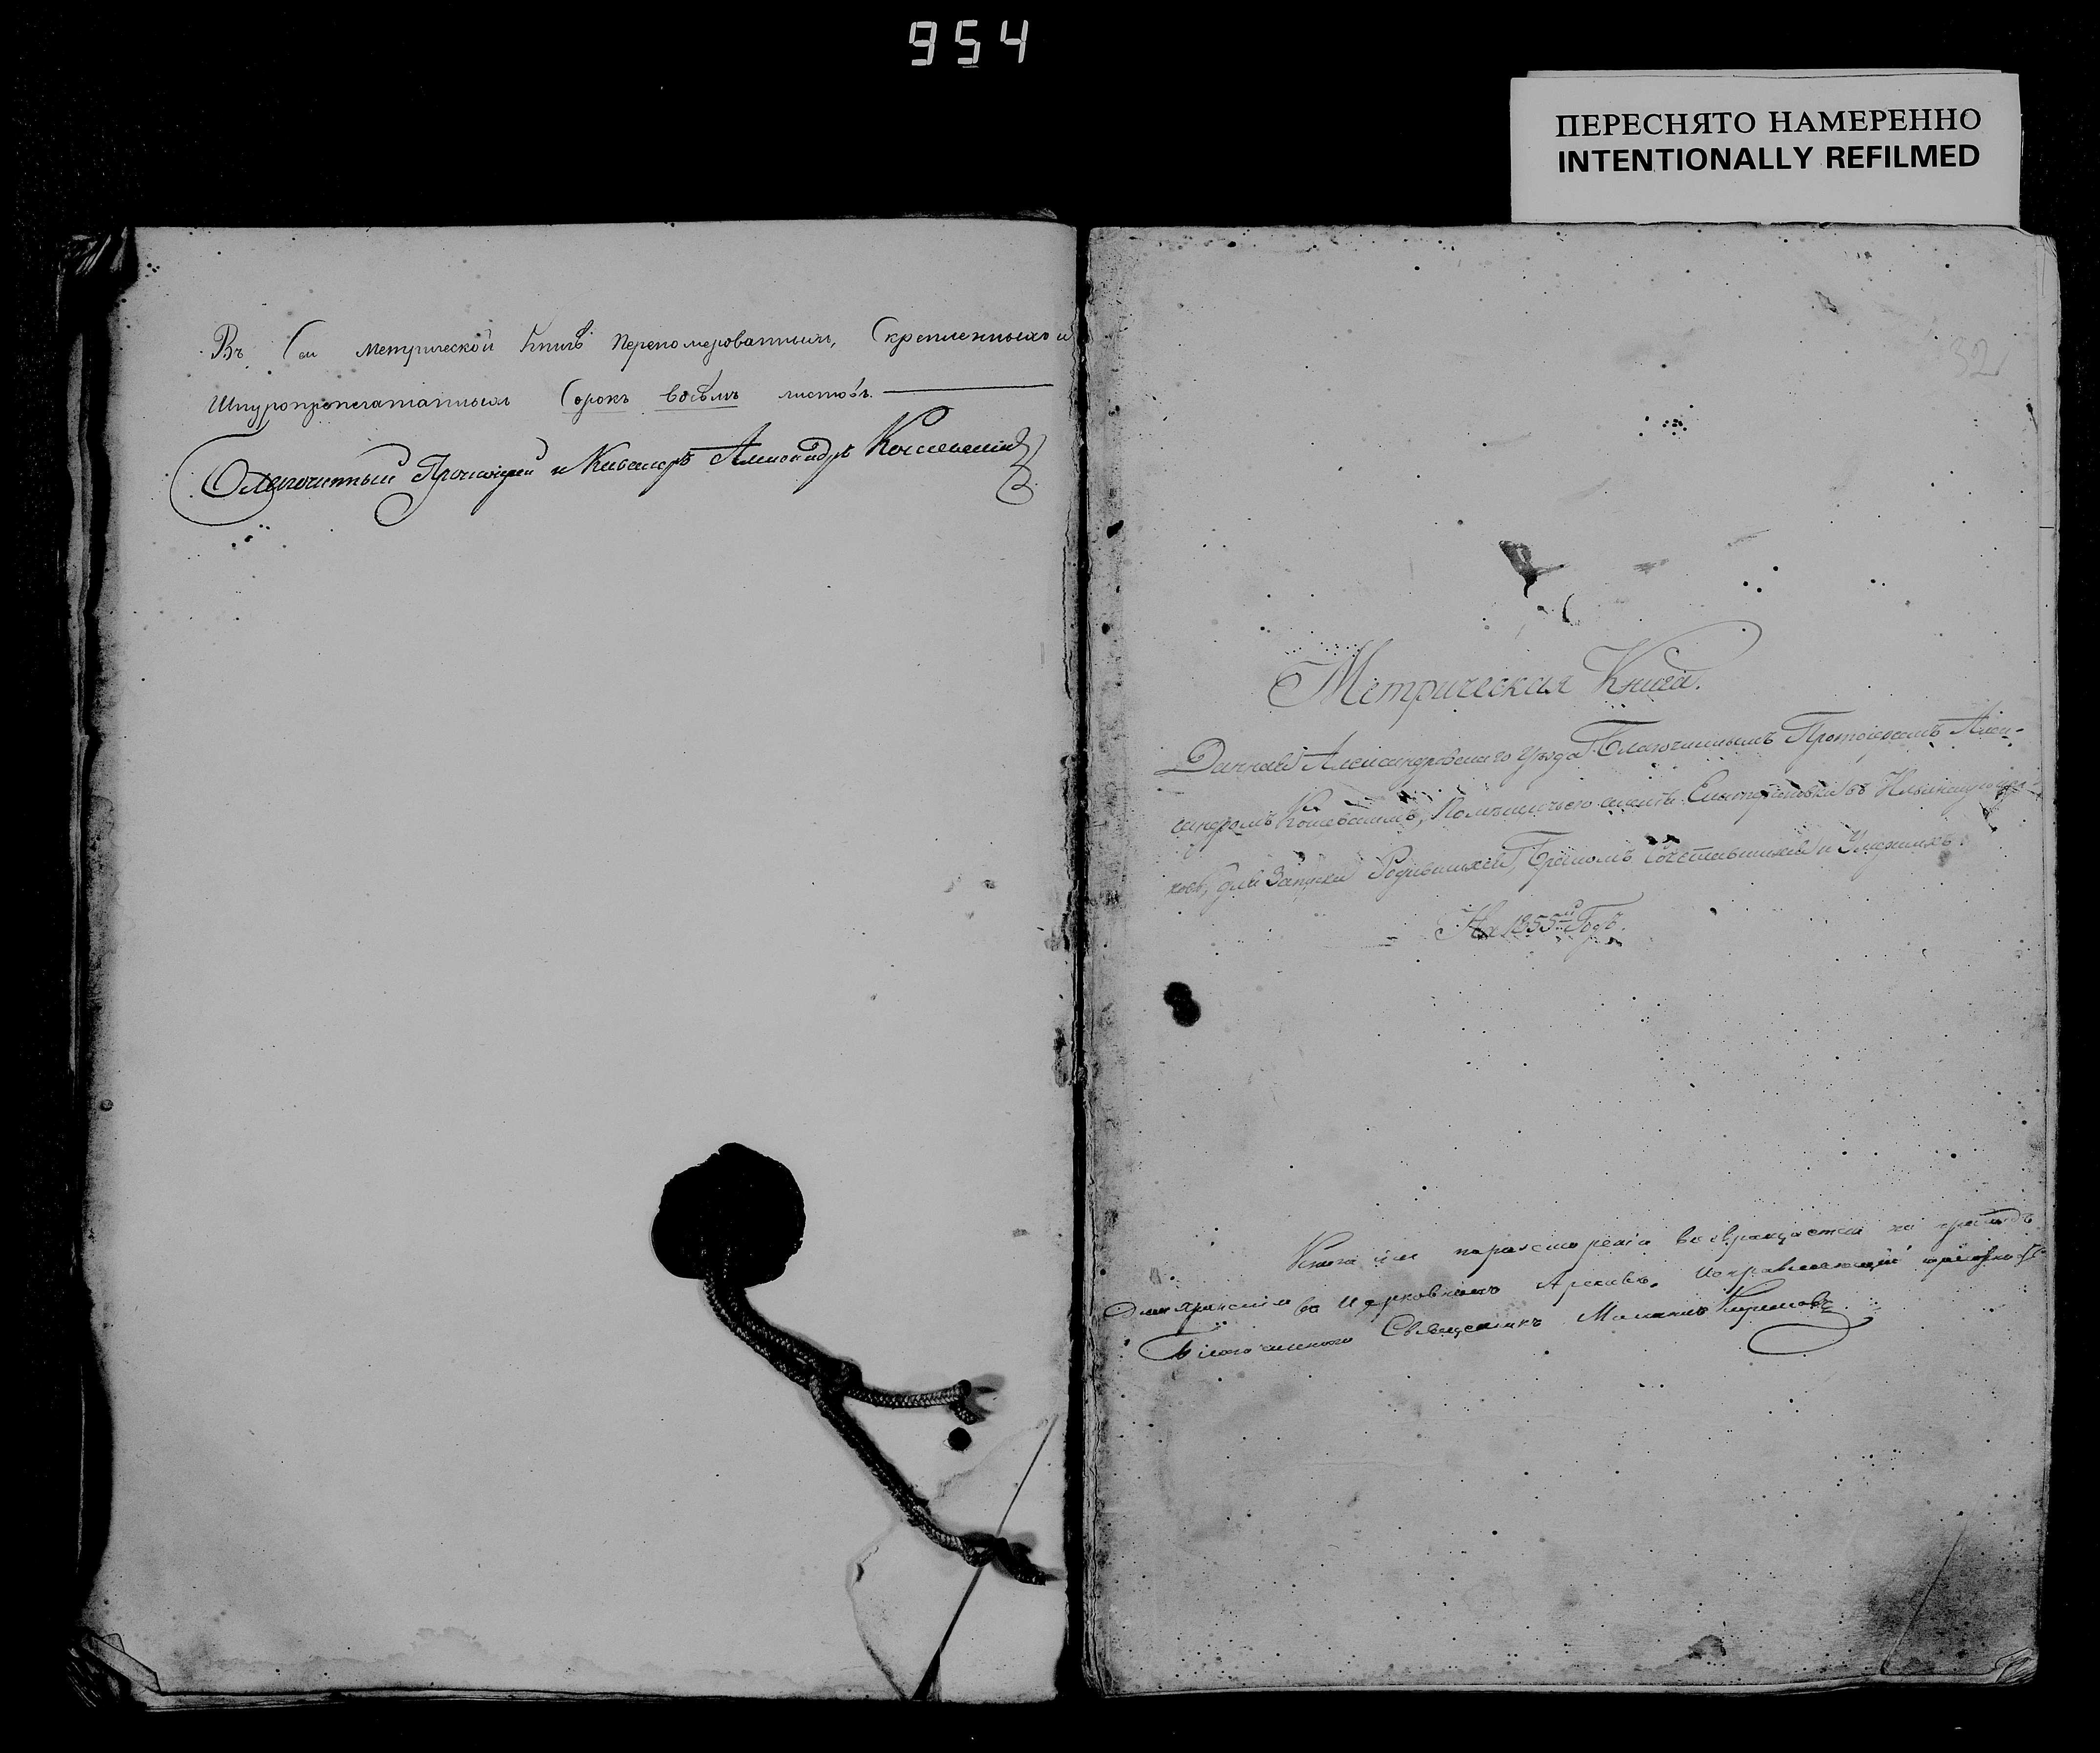 954
ПЕРЕСНЯТО НАМЕРЕННО
INTENTIONALLY REFILMED
Въ Сей Метрической Книгѣ Перепомерованныхъ, Скрепленныхъ и
Шнуропропечатанныхъ Сорокъ восѣмъ листовъ.
Благочинный Протоіерей и Кавалеръ Александръ Кошевскій
32
Метрическая Книга.
Данная Александровскаго Уѣзда Благочиннымъ Протоіереемъ Алек-
сандромъ Кошевскимъ, въ
для Записки Родившихся, Бракомъ Сочетавшихся и Умершихъ.
На 1855ый Годъ.
Книга сія возвращается
Для храненія въ Церковномъ Архивѣ. Исправляющій должность
Благочиннаго Священникъ